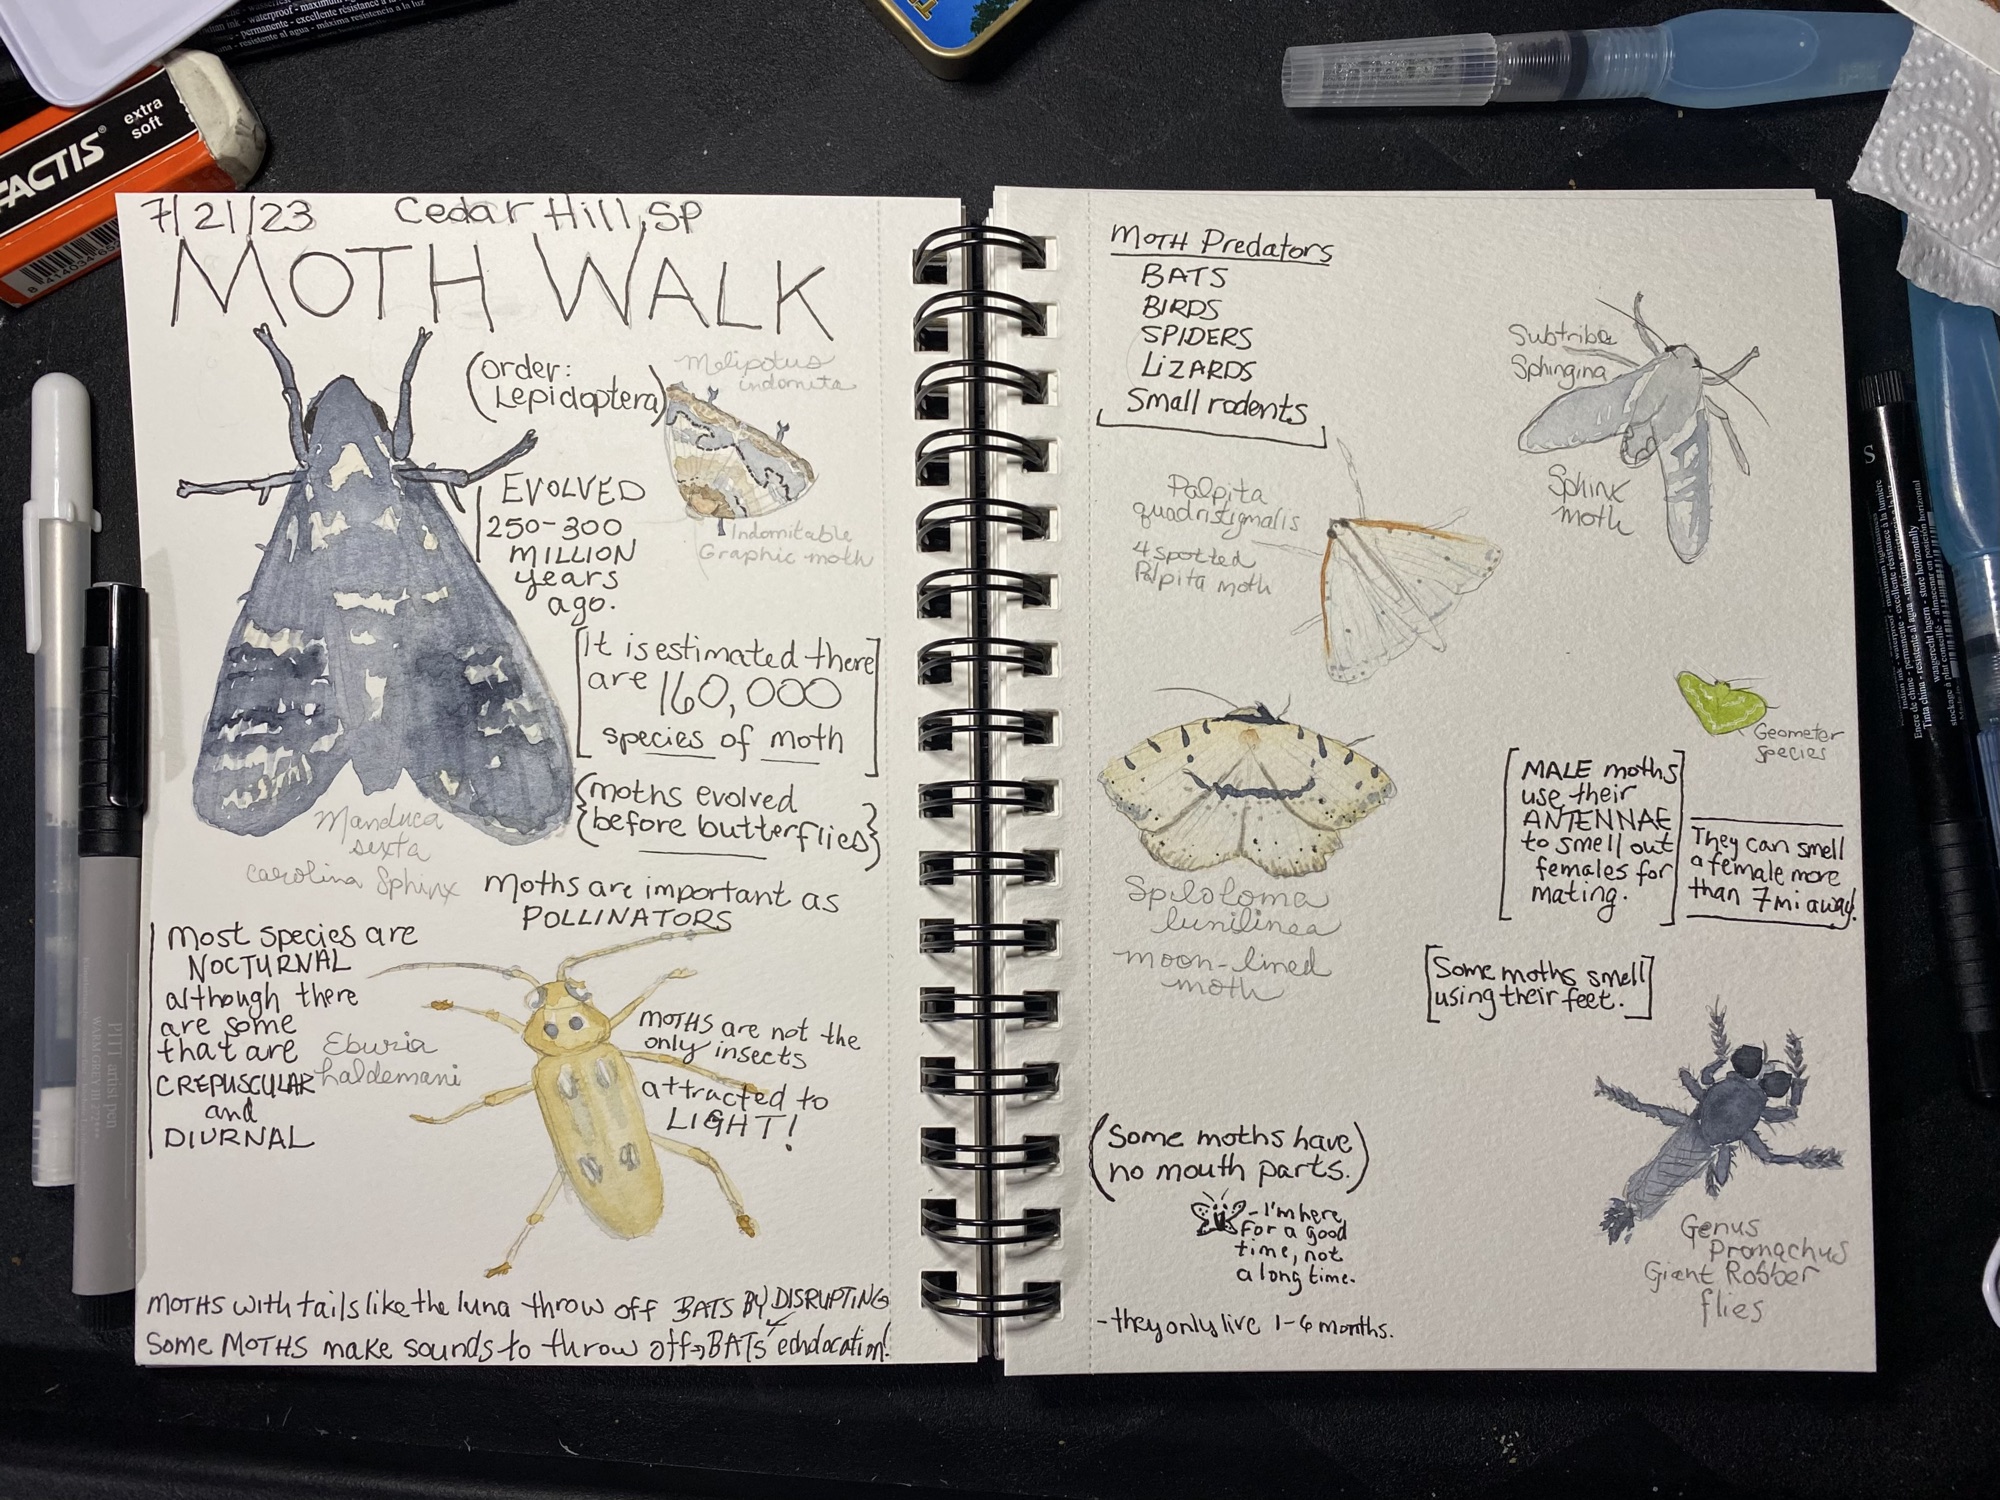 FACTIS®
extra
soft
7/21/23 Cedar Hill, SP
MOTH WALK
(order:
Lepidoptera)
Melipotus
indomita
Indomitable
Graphic moth
EVOLVED
250-300
MILLION
years
ago.
[It is estimated there
are 160,000
species of moth]
{moths evolved
{before butterflies}
Manduca
sexta
Carolina Sphinx
Moths are important as
POLLINATORS
Most species are
NOCTURNAL
although there
are some
that are
CREPUSCULAR
and
DIURNAL
Eburia
haldemani
MOTHS are not the
only insects
attracted to
LIGHT!
MOTHS with tails like the luna throw off BATS BY DISRUPTING
Some MOTHS make sounds to throw off → BATS' echolocation!
MOTH Predators
BATS
BIRDS
SPIDERS
LIZARDS
Small rodents
Subtribe
Sphingina
Sphinx
moth
Palpita
quadristigmalis
4 spotted
Palpita moth
Geometer
species
Spiloloma
lunilinea
moon-lined
moth
[MALE moths
use their
ANTENNAE
to smell out
females for
mating.]
They can smell
a female more
than 7mi away.
[Some moths smell
using their feet.]
(Some moths have
no mouth parts.)
- I'm here
for a good
time, not
a long time.
- they only live 1-6 months.
Genus
Promachus
Giant Robber
flies
PITT artist pen
WARM GREY III
S